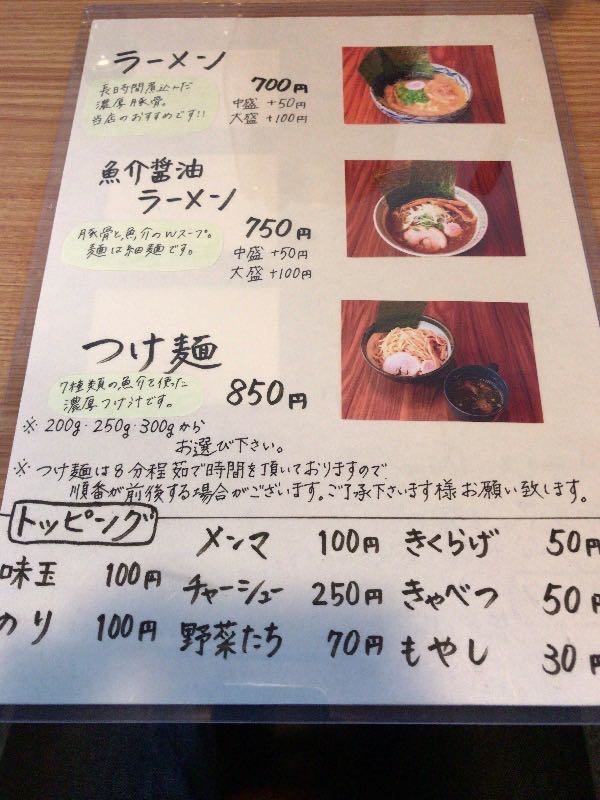 ラーメン
長時間煮込んだ
濃厚豚骨。
当店のおすすめです!!
700円
中盛 +50円
大盛 +100円
魚介醤油
ラーメン
豚骨と魚介のWスープ。
麺は細麺です。
750円
中盛 +50円
大盛 +100円
つけ麺
7種類の魚介を使った
濃厚つけ汁です。
850円
※ 200g・250g・300gから
お選び下さい。
※ つけ麺は8分程茹で時間を頂いておりますので
順番が前後する場合がございます。ご了承下さいます様お願い致します。
トッピング
味玉 100円
のり 100円
メンマ 100円
チャーシュー 250円
野菜たち 70円
きくらげ 50円
きゃべつ 50円
もやし 30円